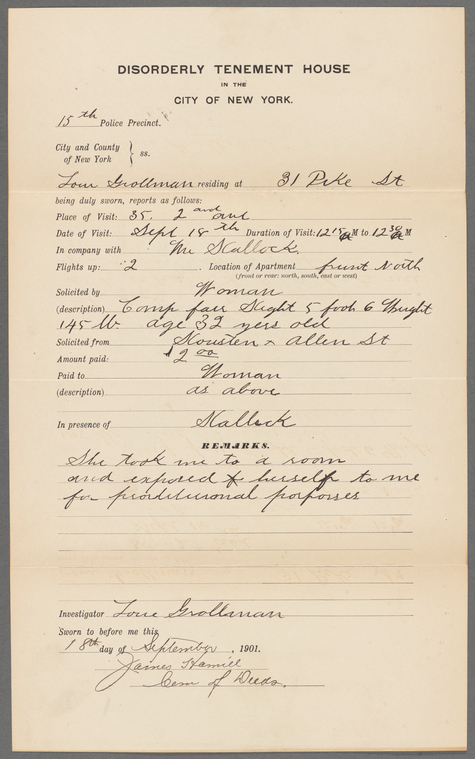 DISORDERLY TENEMENT HOUSE
IN THE
CITY OF NEW YORK.
15th Police Precinct.
City and County
of New York } ss.
Grollman residing at 31 Pike St
being duly sworn, reports as follows:
Place of Visit: 35. 2nd
Date of Visit: Sept 18th Duration of Visit: 12 15 M to 12 30 M
In company with Mr Kallock
Flights up: 2. Location of Apartment front North
(front or rear: north, south, east or west)
Solicited by Woman
(description) Comp fair Hight 5 foot 6 Whight
145 lb. age 32 yers old
Solicited from Housten & Allen St
Amount paid: $2 00
Paid to Woman
(description) as above
In presence of Kallock
REMARKS.
She took me to a room
and exposed herself to me
for porposses
Investigator Grollman
Sworn to before me this,
18th day of September, 1901.
James Hamill
Com of Deeds.